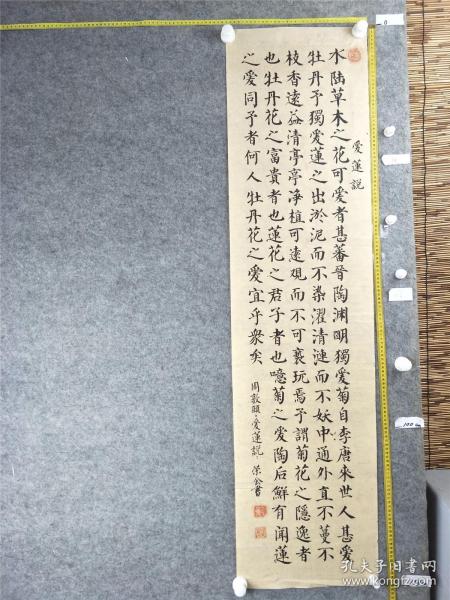 愛蓮説
水陸草木之花可愛者甚蕃晉陶渊明獨愛菊自李唐來世人甚愛
牡丹予獨愛蓮之出淤泥而不染濯清漣而不妖中通外直不蔓不
枝香遠益清亭亭淨植可遠觀而不可褻玩焉予謂菊花之隱逸者
也牡丹花之富貴者也蓮花之君子者也噫菊之愛陶后鮮有聞蓮
之愛同予者何人牡丹花之愛宜乎衆矣
周敦頤·愛蓮説·榮金書
0
100 cm
孔夫子旧书网